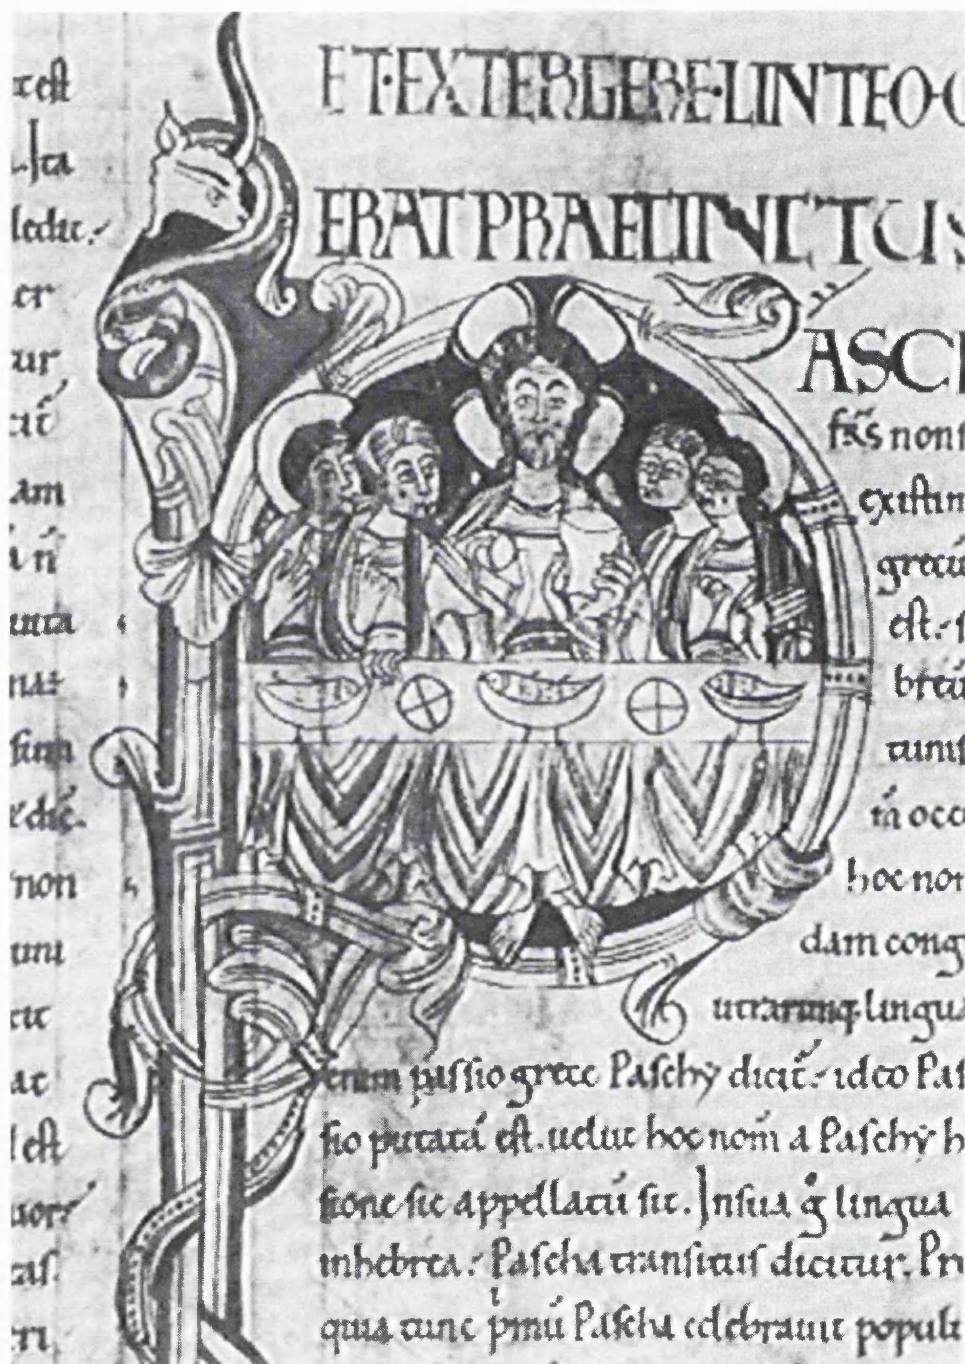 est
Ita
ledic.
er
ur
cit̄
am
a n̄
iuta
nar
sum
dic̄.
non
umi
eic
ac
est
uor
tas.
eri
ET·EXTERGERE·LINTEO·
ERAT PRAECINCTUS
PASCH
fr̄s non
existim
grecū
est.
breū
tunis
m̄ occ
hoc non
dam cong
utrarumq· lingua
enim passio grece Paschỹ dicit̄. ideo Pas
sio putata ē est. uelut hoc nom̄ a Paschỹ
sione sic appellatū sit. In sua g̊ lingua
in hebrea. Pascha transitus dicitur.
quia tunc pⁱmū Pascha celebrauit populi